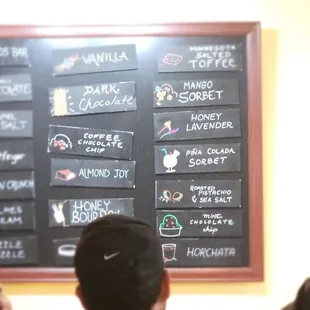 BAR
VANILLA
MINNESOTA
SALTED
TOFFEE
DARK
Chocolate
MANGO
SORBET
SALT
COFFEE
CHOCOLATE
CHIP
HONEY
LAVENDER
ALMOND JOY
PIÑA COLADA
SORBET
CRUNCH
HONEY
BOURBON
ROASTED
PISTACHIO
& SEA SALT
mint
CHOCOLATE
chip
HORCHATA